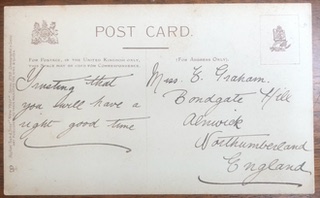 POST CARD.
FOR POSTAGE, IN THE UNITED KINGDOM ONLY,
THIS SPACE MAY BE USED FOR CORRESPONDENCE.
(FOR ADDRESS ONLY).
Trusting that
you will have a
right good time
Miss. E. Graham.
Bondgate Hill
Alnwick
Northumberland
England